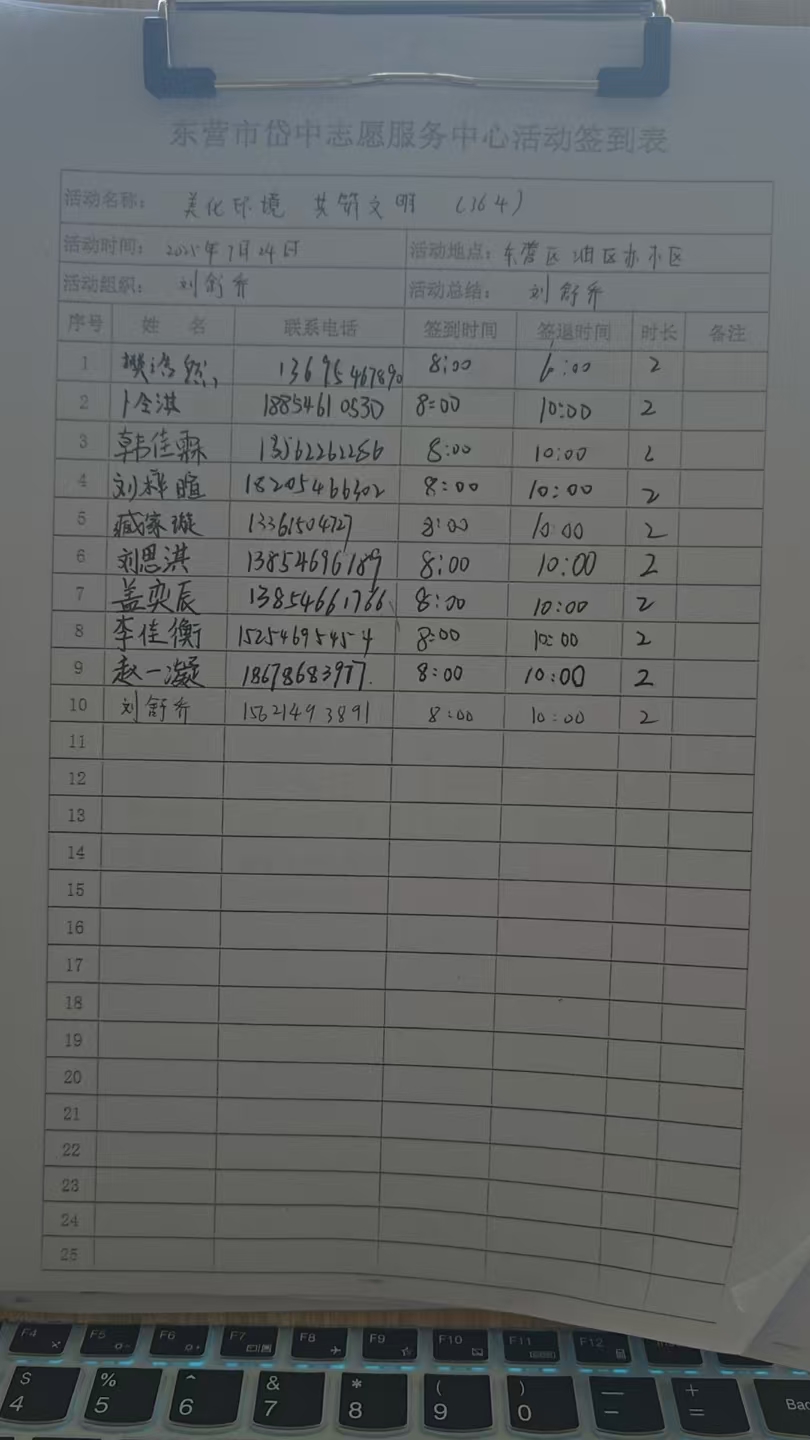 东营市岱中志愿服务中心活动签到表
活动名称： 美化环境 共筑文明 (364)
活动时间： 2025年7月24日 活动地点： 东营区油区办小区
活动组织： 刘舒乔 活动总结： 刘舒乔
序号 姓 名 联系电话 签到时间 签退时间 时长 备注
1 樊浩然 13695467890 8:00 6:00 2
2 卜令淇 18854610530 8:00 10:00 2
3 韩佳霖 13562262286 8:00 10:00 2
4 刘梓暄 18205466302 8:00 10:00 2
5 臧家璇 13361504727 8:00 10:00 2
6 刘思淇 13854696189 8:00 10:00 2
7 盖奕辰 13854661766 8:00 10:00 2
8 李佳衡 15254695454 8:00 10:00 2
9 赵一凝 18678683977. 8:00 10:00 2
10 刘舒乔 15621493891 8:00 10:00 2
11
12
13
14
15
16
17
18
19
20
21
22
23
24
25
F4 F5 F6 F7 F8 F9 F10 F11 F12
$ % ^ & * ( ) — +
4 5 6 7 8 9 0 - = Bac